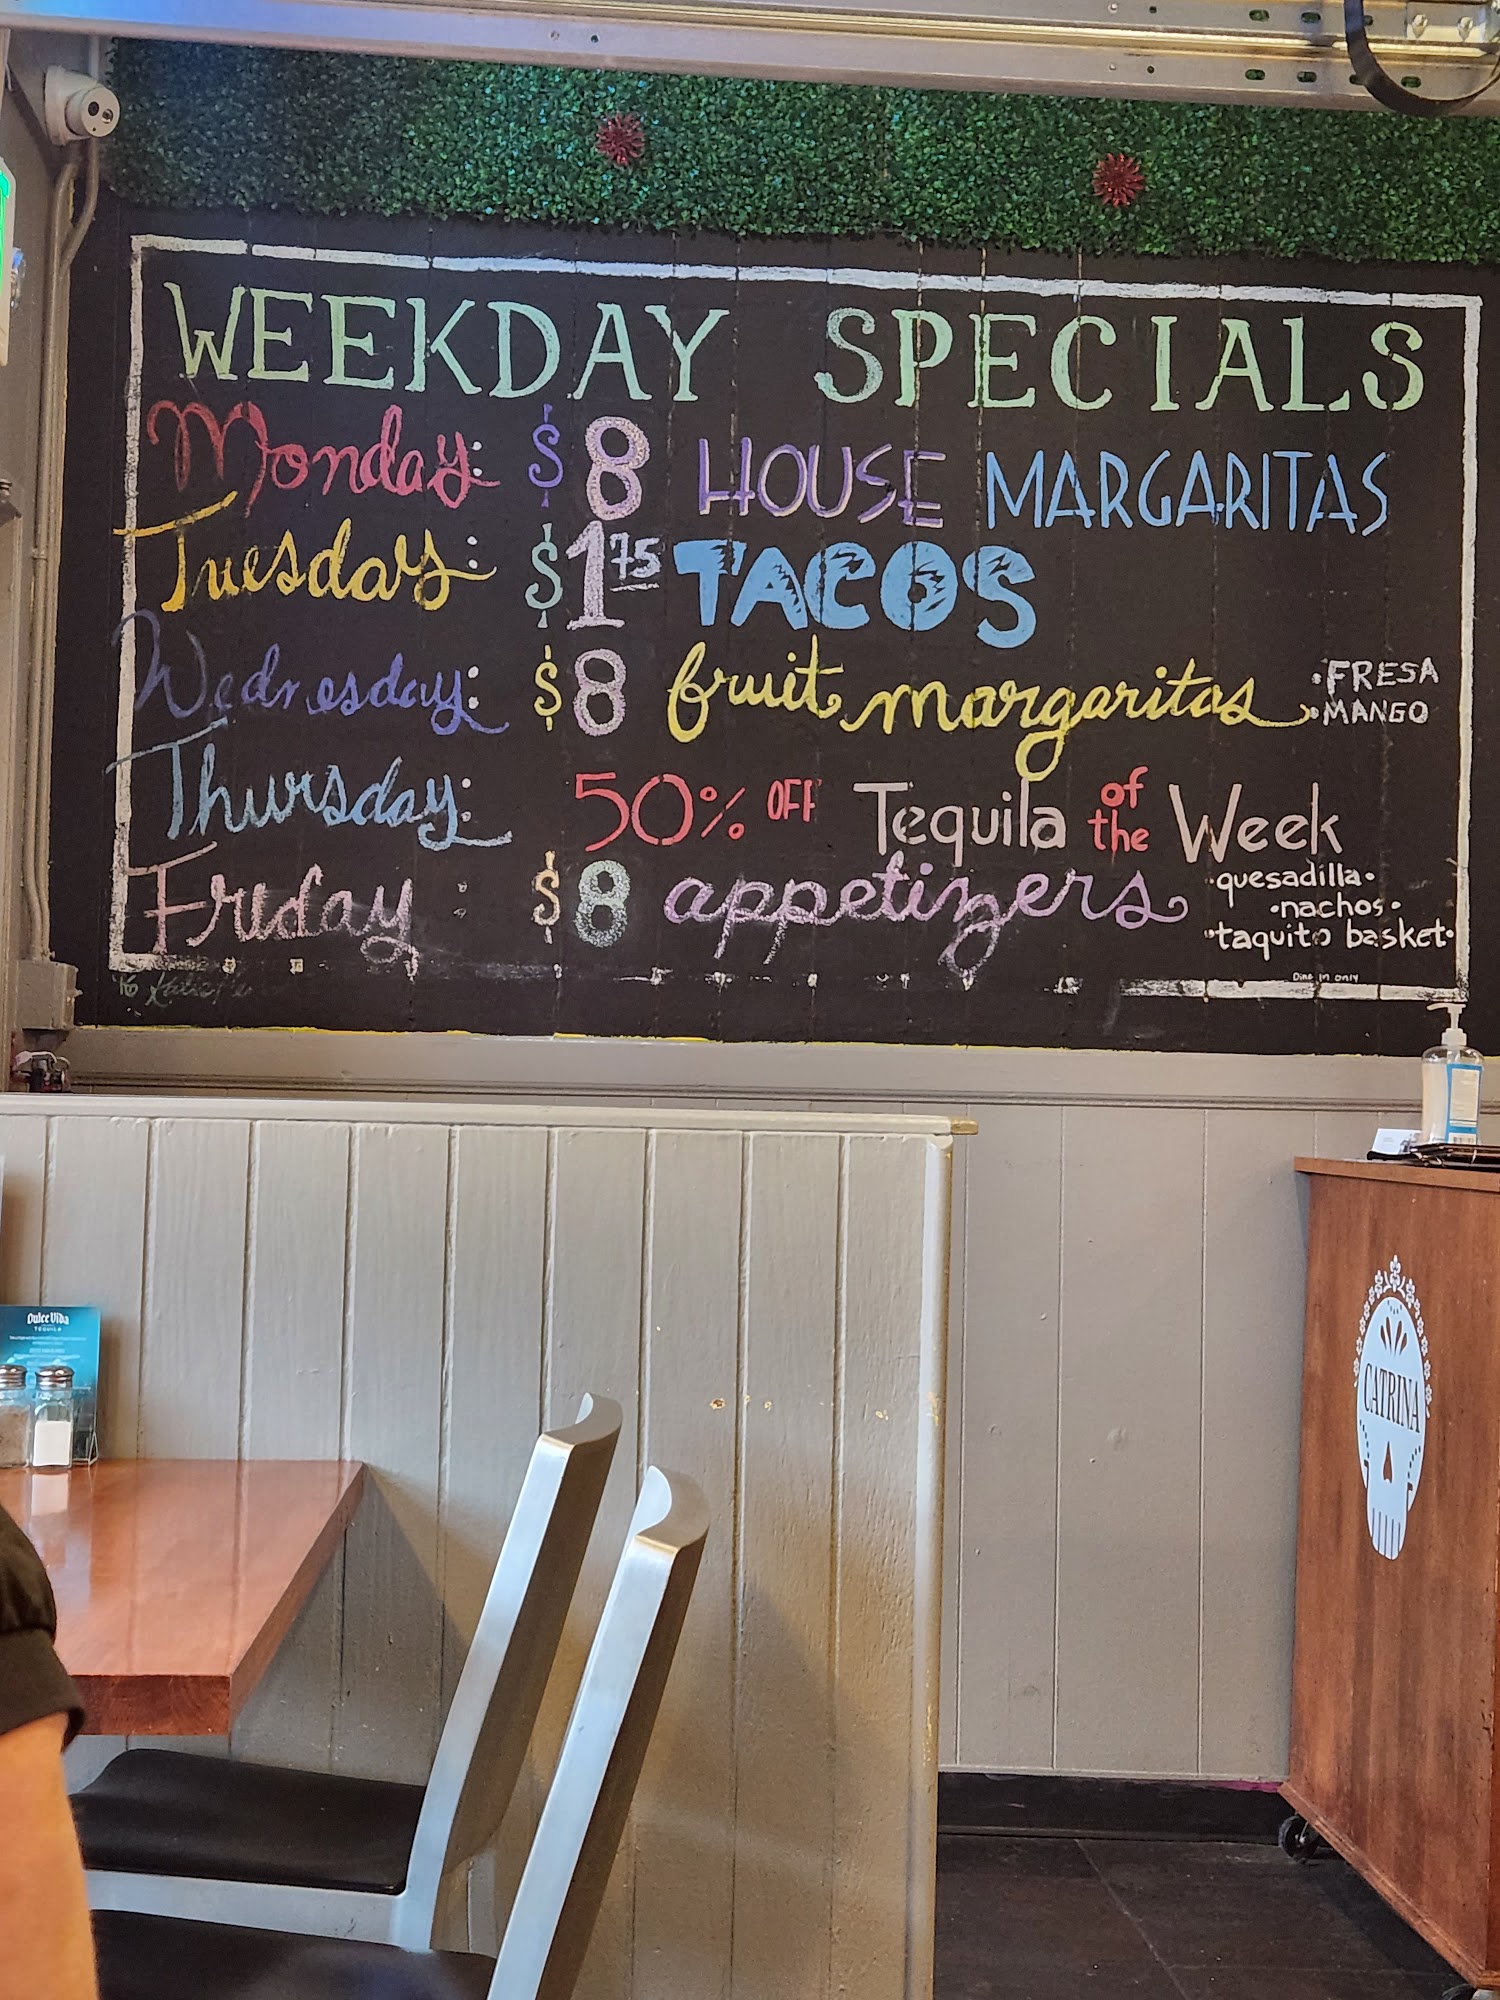 WEEKDAY SPECIALS
Monday: $8 HOUSE MARGARITAS
Tuesday: $1.75 TACOS
Wednesday: $8 fruit margaritas
• FRESA
• MANGO
Thursday: 50% OFF Tequila of the Week
Friday: $8 appetizers
• quesadilla •
• nachos •
• taquito basket •
Dine in only
Dulce Vida
TEQUILA
CATRINA